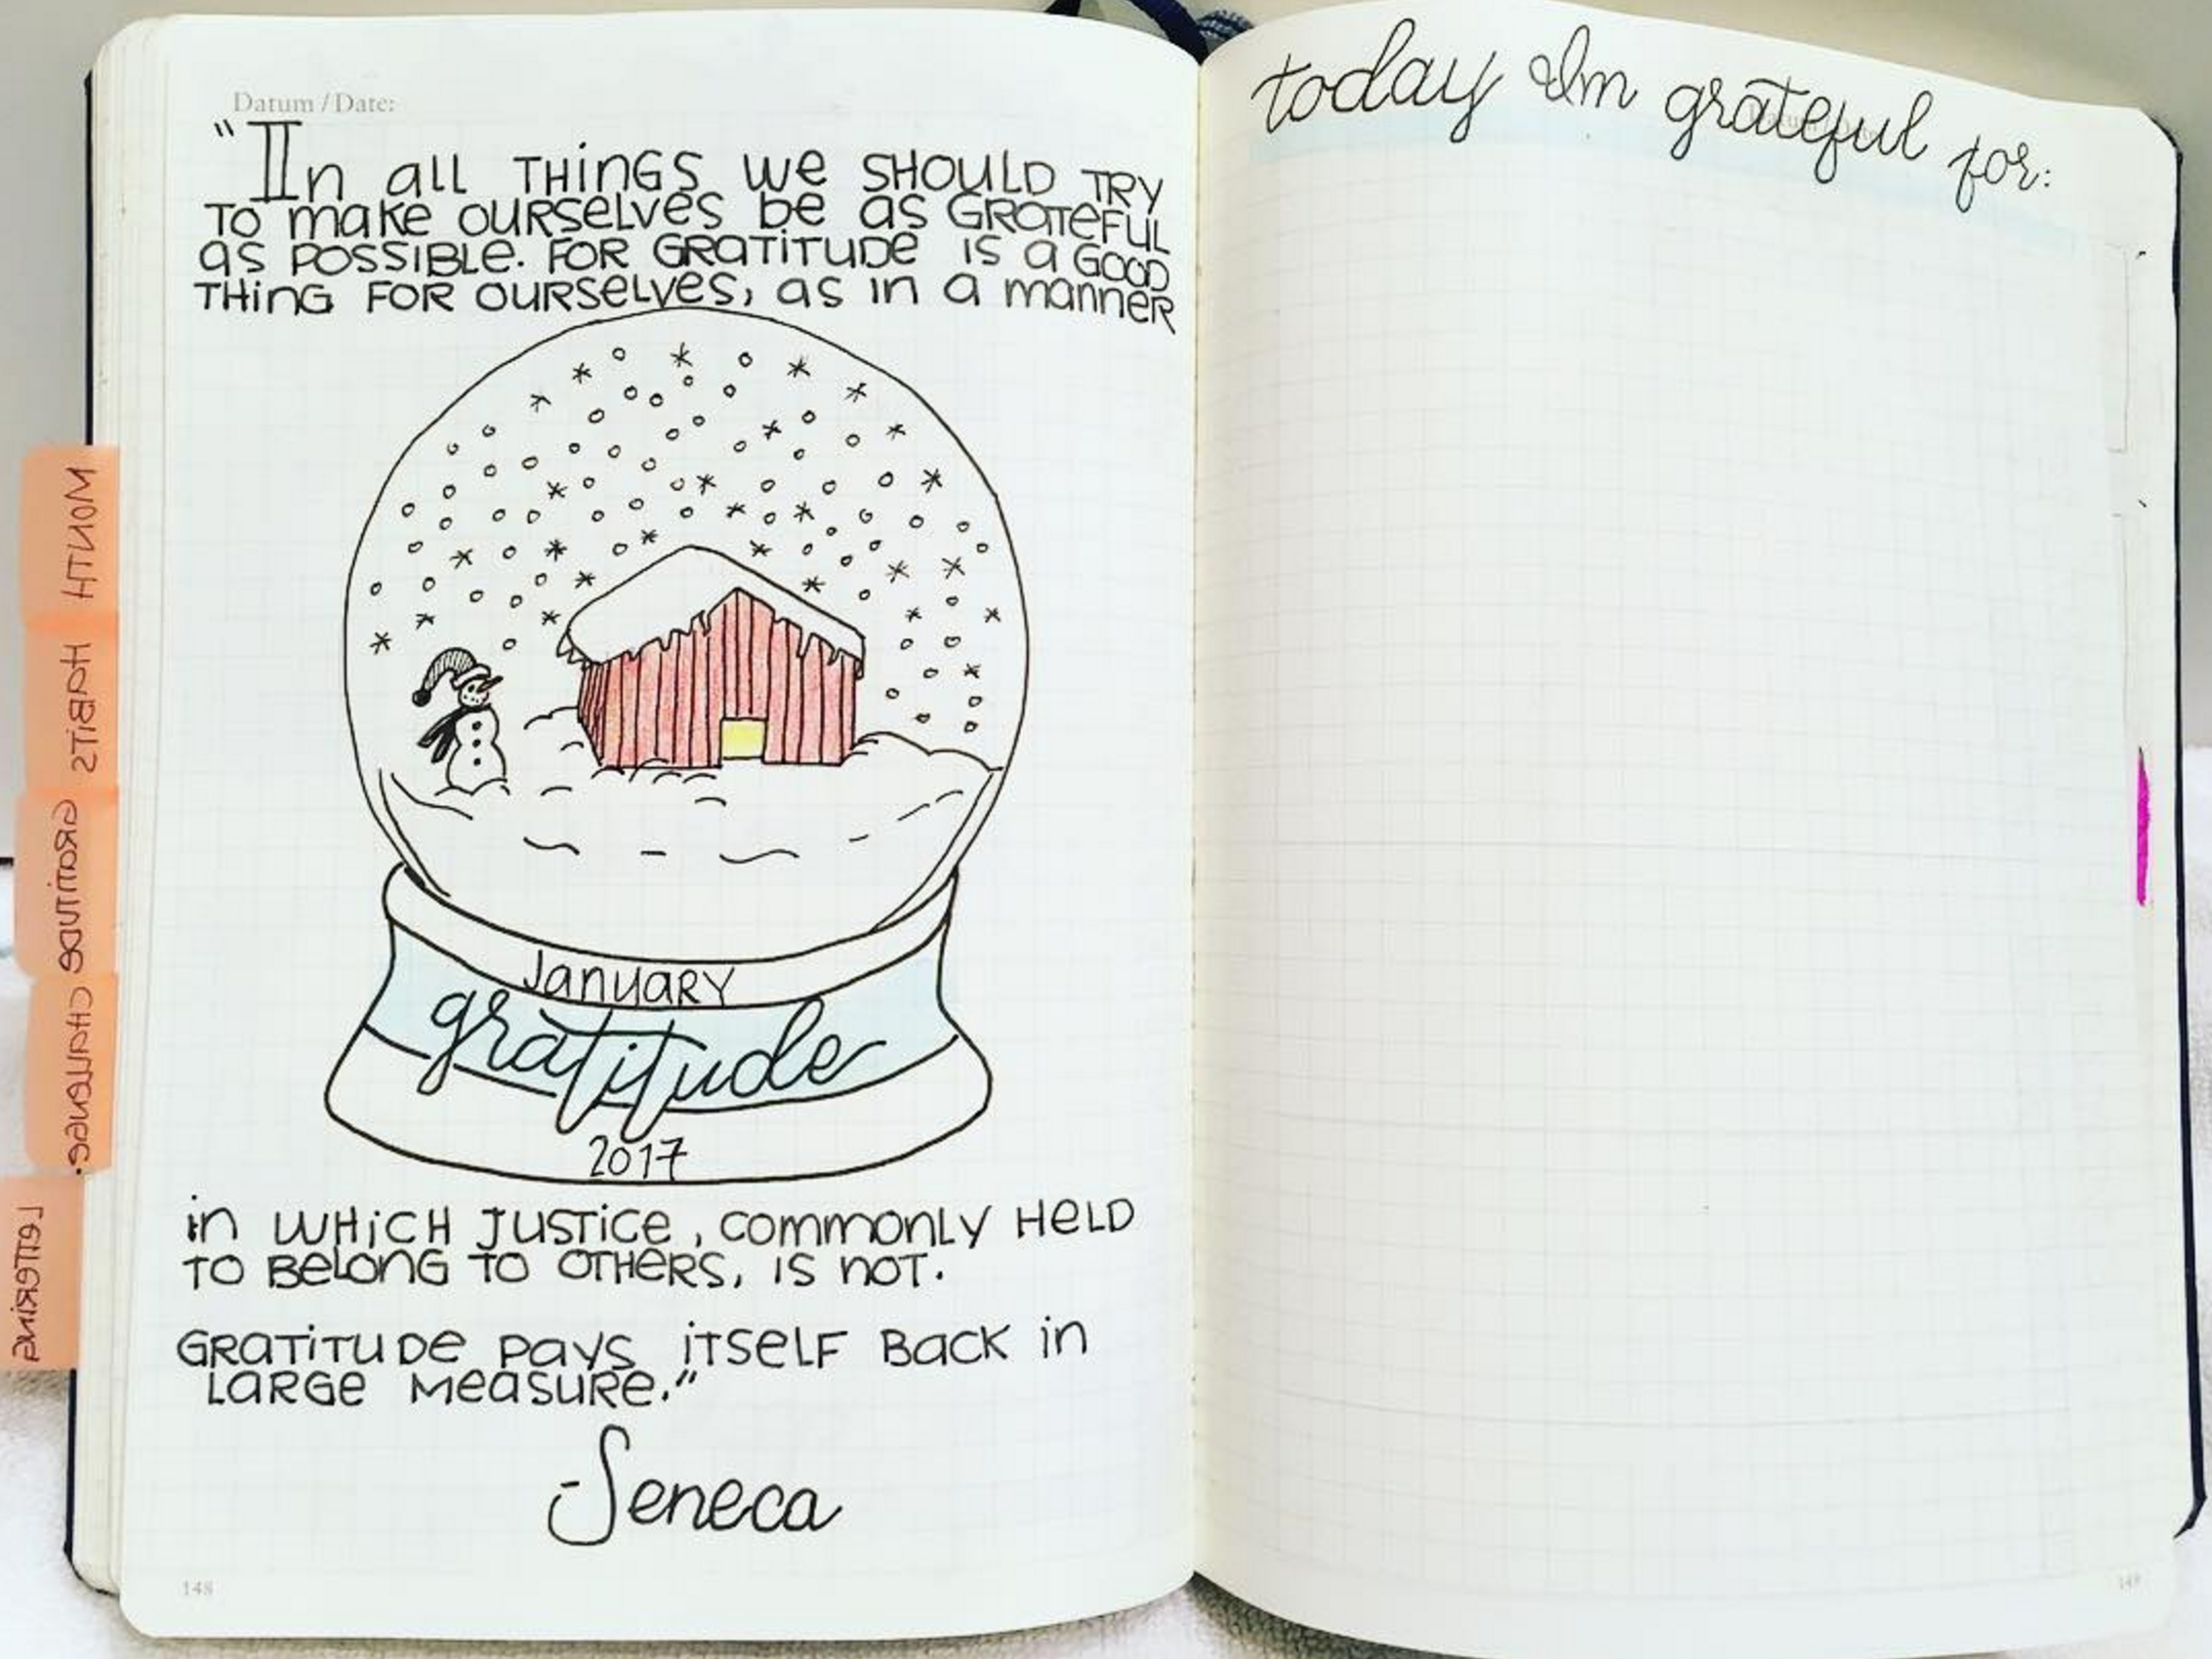 Datum / Date:
"In all THiNGS we SHOULD TRY
TO make OURSELVES be as GRATEFUL
as POSSIBLE. FOR GRATITUDE is a GOOD
THING FOR OURSELVES, as in a manner
January
gratitude
2017
in WHICH JUSTICE, COMMONLY HELD
TO BELONG TO OTHERS, IS NOT.
GRATITUDE Pays iTSELF Back in
LARGE MEASURE."
-Seneca
148
MONTH
HABITS
GRATITUDE
CHALLENGE.
Lettering
today Im grateful for:
149